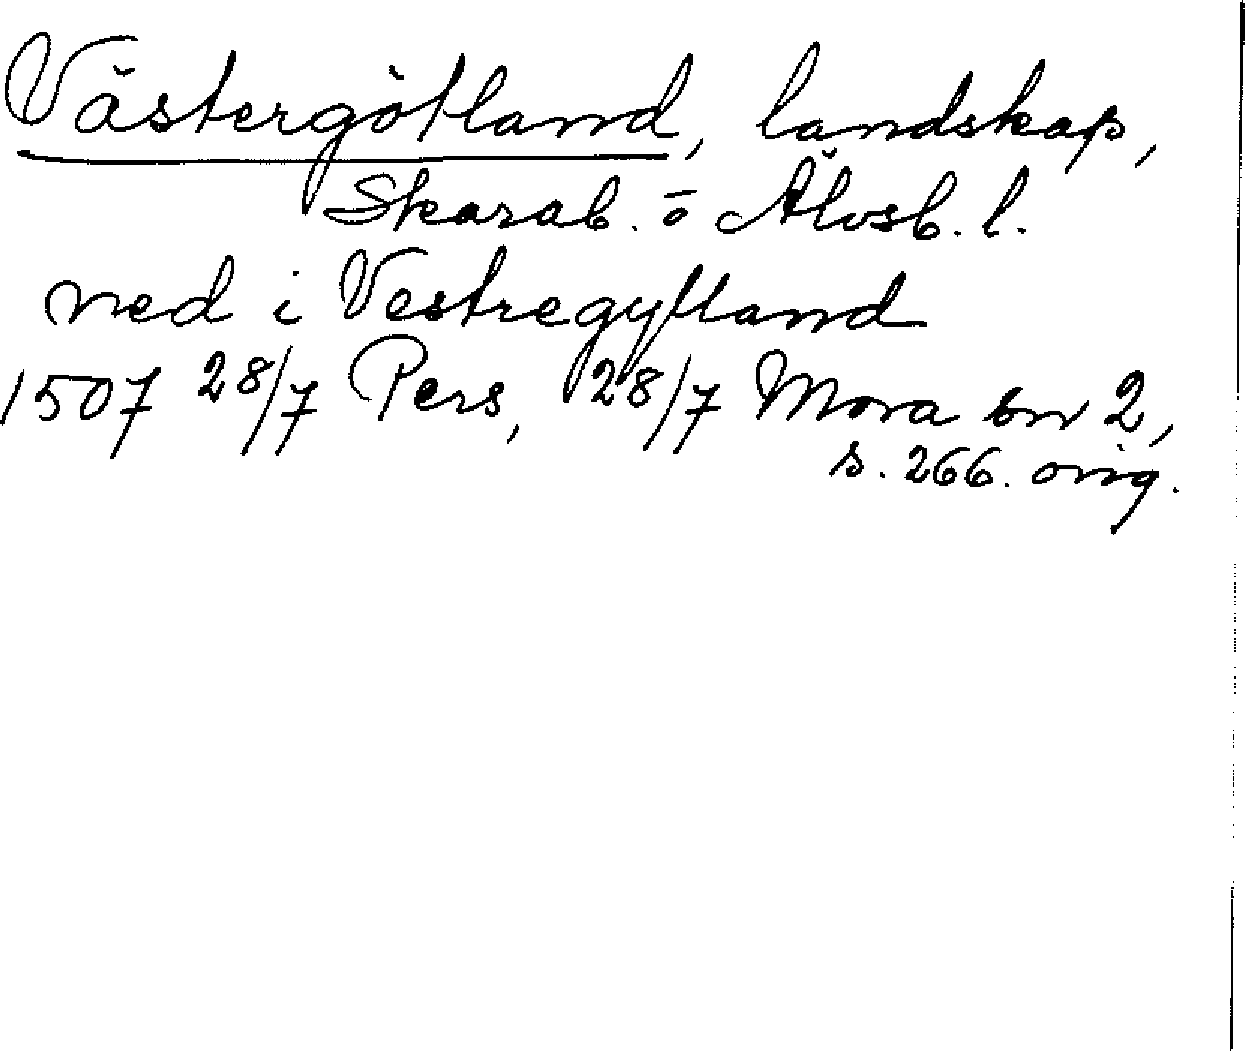 Västergötland, landskap,
Skarab. o Älvsb. l.
ned i Vestregytland
1507 28/7 Pers, 28/7 Mora br 2,
s. 266. orig.